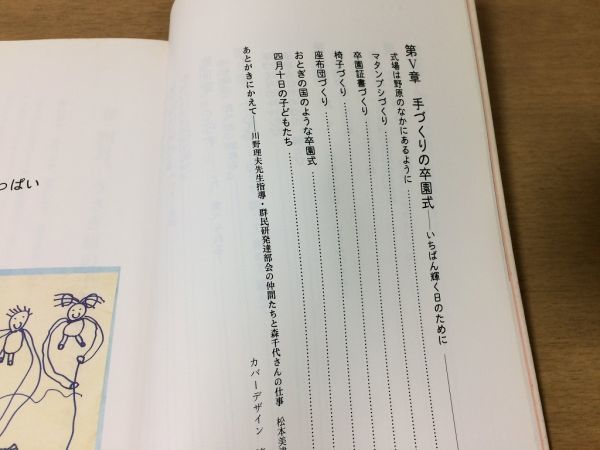 第Ⅴ章 手づくりの卒園式——いちばん輝く日のために
式場は野原のなかにあるように
マタンプシづくり
卒園証書づくり
椅子づくり
座布団づくり
おとぎの国のような卒園式
四月十日の子どもたち
あとがきにかえて——川野理夫先生指導・群民研発達部会の仲間たちと森千代さんの仕事 松本美津
カバーデザイン
っぱい